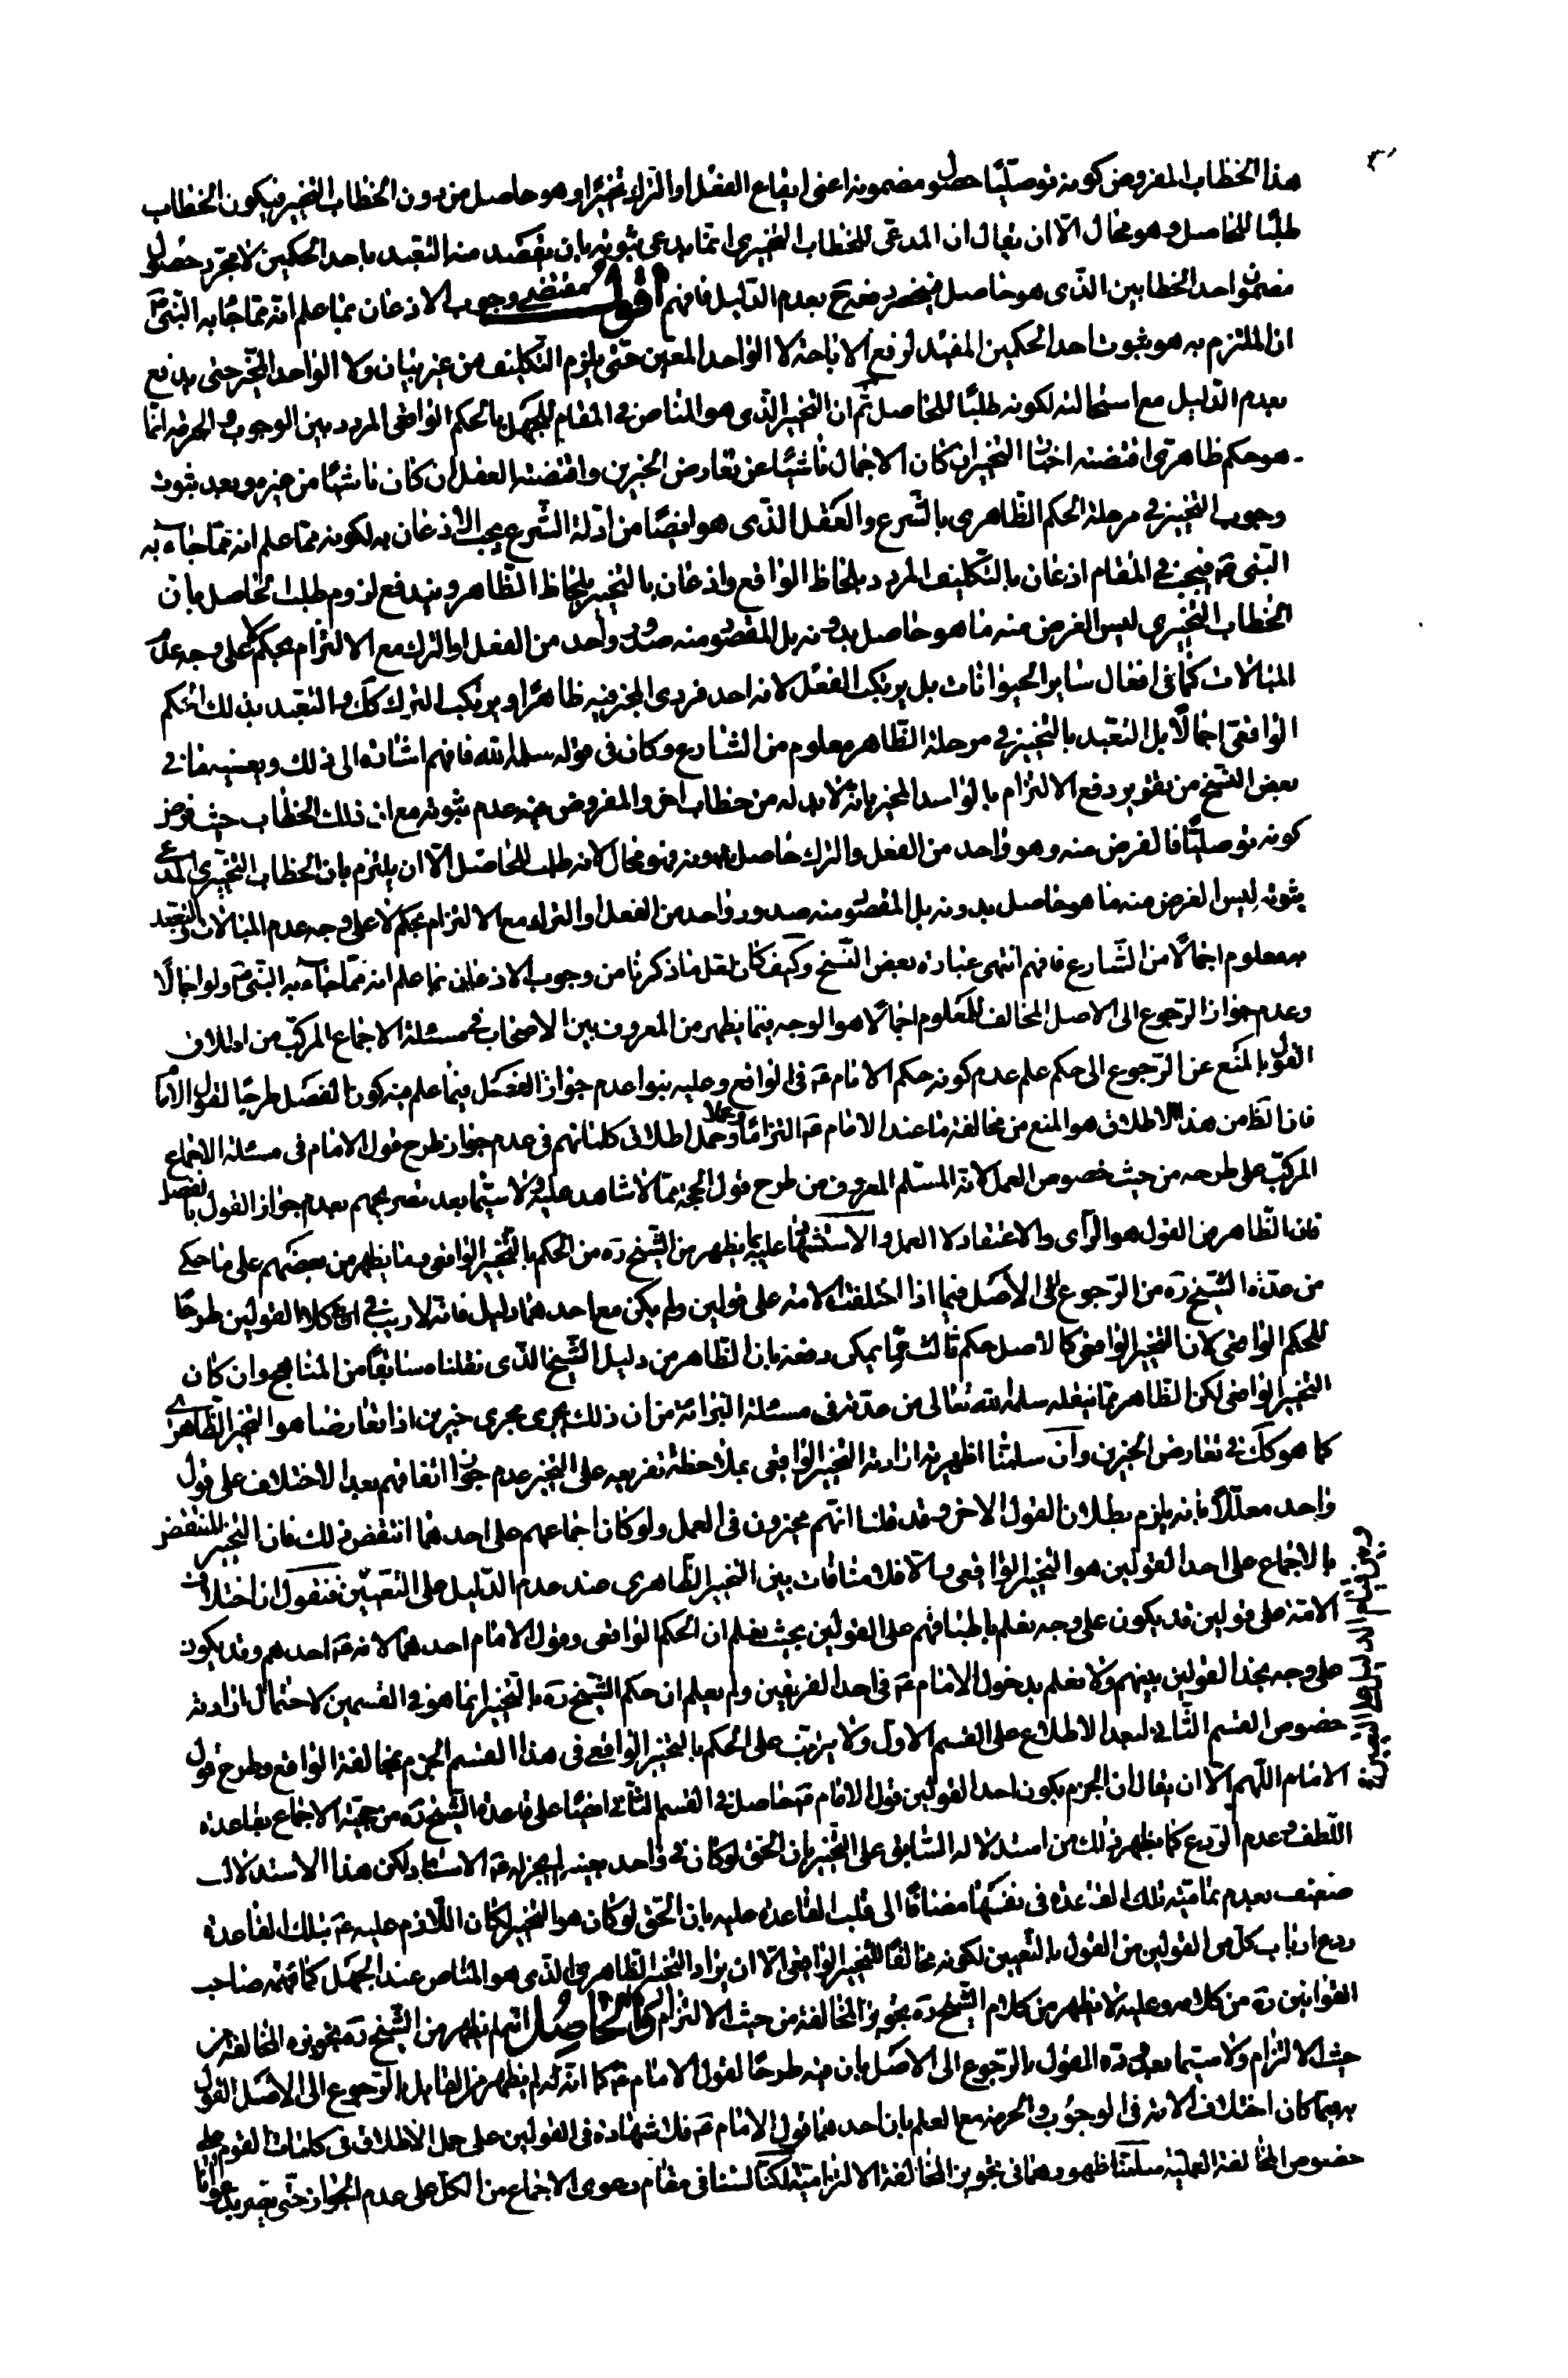 هذا الخطاب المفروض كونه توصليّا حصول مضمونه اعنى ايقاع الفعل او الترك تخييرا وهو حاصل من دون الخطاب التخييرى فيكون الخطاب
طلبًا للحاصل وهو محال الّا ان يقال ان المدعى للخطاب التخييرى انما يدعى ثبوته بان يقصد منه التعبد باحد الحكمين لا مجرّد حصول
مضمون احد الخطابين الذى هو حاصل فينحصر دفعه ح بعدم الدليل فافهم اقول مقتضى وجوب الاذعان بما علم انه مما جاء به النبىّ
ان الملتزم به هو ثبوت احد الحكمين المفيد لرفع الاباحة لا الواحد المعين حتى يلزم التكليف من غير بيان ولا الواحد المخيّر حتى يدفع
بعدم الدليل مع استحالته لكونه طلبًا للحاصل ثم ان التخيير الذى هو المناص فى المقام للجهل بالحكم الواقعى المردد بين الوجوب والحرمة انما
هو حكم ظاهرى اقتضته اخبار التخيير ان كان الاجمال ناشئًا عن تعارض الخبرين واقتضته العقل ان كان ناشئًا من غيره وبعد ثبوت
وجوب التخيير فى مرحلة الحكم الظاهرى بالشرع والعقل الذى هو ايضًا من ادلة الشرع يجب الاذعان به لكونه مما علم انه مما جاء به
النبى ص فيجب فى المقام اذعان بالتكليف المردد بلحاظ الواقع واذعان بالتخيير بلحاظ الظاهر ويندفع لزوم طلب الحاصل بان
الخطاب التخييرى ليس الغرض منه ما هو حاصل بدونه بل المقصود منه صدور واحد من الفعل او الترك مع الالتزام بحكم لا على وجه عدم
المبالات كما فى افعال ساير الحيوانات بل يرتكب الفعل لانه احد فردى المخير فيه ظاهرًا ويرتكب الترك كك والتعبد بذلك الحكم
الواقعى اجمالًا بل التعبد بالتخيير فى مرحلة الظاهر معلوم من الشارع وكان فى قوله سلمه الله فافهم اشارة الى ذلك ويعنيه ما فى
بعض النسخ من تقوير دفع الالتزام بالواحد المخير بانه لا بد له من خطاب اخر والمفروض فيه عدم ثبوته مع ان ذلك الخطاب حيث فرض
كونه توصليًّا فالغرض منه وهو واحد من الفعل والترك حاصل بدونه فهو محال لانه طلب للحاصل الّا ان يلتزم بان الخطاب التخييرى المدعى
ثبوته ليس الغرض منه ما هو حاصل بدونه بل المقصود منه صدور واحد من الفعل او الترك مع الالتزام بحكم لا على وجه عدم المبالات والتعبد
به معلوم اجمالًا من الشارع فافهم انتهى عبارة بعض النسخ وكيف كان لعل ما ذكرنا من وجوب الاذعان بما علم انه مما جاء به النبى ص ولو اجمالًا
وعدم جواز الرجوع الى الاصل المخالف للمعلوم اجمالًا هو الوجه فيما يظهر من المعروف بين الاصحاب فى مسئلة الاجماع المركب من اطلاق
القول بالمنع عن الرجوع الى حكم علم عدم كونه حكم الامام ع فى الواقع وعليه بنوا عدم جواز الفصل فيما علم فيه كون الفصل طرحًا لقول الامام
فان الظ من هذا الاطلاق هو المنع من مخالفة ما عند الامام ع التزامًا وعملا وحمل اطلاق كلماتهم فى عدم جواز طرح قول الامام فى مسئلة الاجماع
المركب على طرحه من حيث خصوص العمل لانه المسلم المعروف من طرح قول الحجة مما لا شاهد عليه ولا سيّما بعد تصريحهم بعدم جواز القول بالفصل
فان الظاهر من القول هو الرأى والاعتقاد لا العمل والاستشهاد عليه بما يظهر من الشيخ ره من الحكم بالتخيير الواقعى وما يظهر من بعضهم على ما حكى
من عدّة الشيخ ره من الرجوع الى الاصل فيما اذا اختلفت الامة على قولين ولم يكن مع احدهما دليل فانه لا ريب فى ان فى كلا القولين طرحًا
للحكم الواقعى لان التخيير الواقعى كالاصل حكم ثالث مما يمكن دفعه بان الظاهر من دليل الشيخ الذى نقلناه سابقًا من المناهج وان كان
التخيير الواقعى لكن الظاهر مما نقله سلمه الله تعالى من عدّته فى مسئلة البرائة من ان ذلك يجرى مجرى خبرين اذا تعارضا هو التخيير الظاهرى
كما هو كك فى تعارض الخبرين وان سلمنا اظهرية ارادته التخيير الواقعى بملاحظة تفريعه على التخيير عدم جواز اتفاقهم بعد الاختلاف على قول
واحد معلّلًا بانه يلزم بطلان القول الاخر وقد قلنا انهم مخيرون فى العمل ولو كان اجماعهم على احدهما انتقض ذلك فان التخيير المنتقض
بالاجماع على احد القولين هو التخيير الواقعى والا فلا منافات بين التخيير الظاهرى عند عدم الدليل على التعيين فنقول ان اختلاف
الامة على قولين قد يكون على وجه نعلم باطباقهم على القولين بحيث نعلم ان الحكم الواقعى وقول الامام احدهما لانه ع احدهم وقد يكون
على وجه نجد القولين بينهم ولا نعلم بدخول الامام ع فى احد الفريقين ولم يعلم ان حكم الشيخ ره بالتخيير انما هو فى القسمين لاحتمال ارادته
خصوص القسم الثانى لبعد الاطلاع على القسم الاول ولا يترتب على الحكم بالتخيير الواقعى فى هذا القسم الجزم بمخالفة الواقع وطرح قول
الامام اللّهم الّا ان يقال ان الجزم بكون احد القولين قول الامام ع حاصل فى القسم الثانى ايضًا على قاعدة الشيخ ره من حجية الاجماع بقاعدة
اللطف وعدم الردع كما يظهر ذلك من استدلاله السابق على التخيير بان الحق لو كان فى واحد بعينه لم يجز له ع الاستتار ولكن هذا الاستدلال
ضعيف بعدم تمامية تلك القاعدة فى نفسها مضافًا الى قلب القاعدة عليه بان الحق لو كان هو التخيير لكان اللازم عليه ع بتلك القاعدة
ردع ارباب كل من القولين من القول بالتعيين لكونه مخالفًا للتخيير الواقعى الّا ان يراد التخيير الظاهرى الذى هو المناص عند الجهل كما فهمه صاحب
القوانين ره من كلامه وعليه لا يظهر من كلام الشيخ ره تجويز المخالفة من حيث الالتزام والحاصل انه لم يظهر من الشيخ ره تجويزه المخالفة من
حيث الالتزام ولا سيما بعد رده القول بالرجوع الى الاصل بان فيه طرحًا لقول الامام ع كما انه لم يظهر من القايل بالرجوع الى الاصل القول
به فيما كان اختلاف الامة فى الوجوب والحرمة مع العلم بان احدهما قول الامام ع فلا شهادة فى القولين على حمل الاطلاق فى كلمات القوم على
خصوص المخالفة العملية سلمنا ظهورهما فى تجويز المخالفة الالتزامية لكنّا لسنا فى مقام دعوى الاجماع من الكل على عدم الجواز حتى